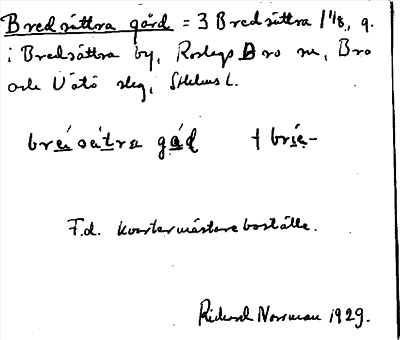 Bredsättra gård = 3 Bredsättra 1 1/8, g.
i Bredsättra by, Roslags Bro sn, Bro
och Vätö slg, Sthlms l.
breisætra gád † brie-
F.d. kvartermästareboställe.
Rickard Norrman 1929.